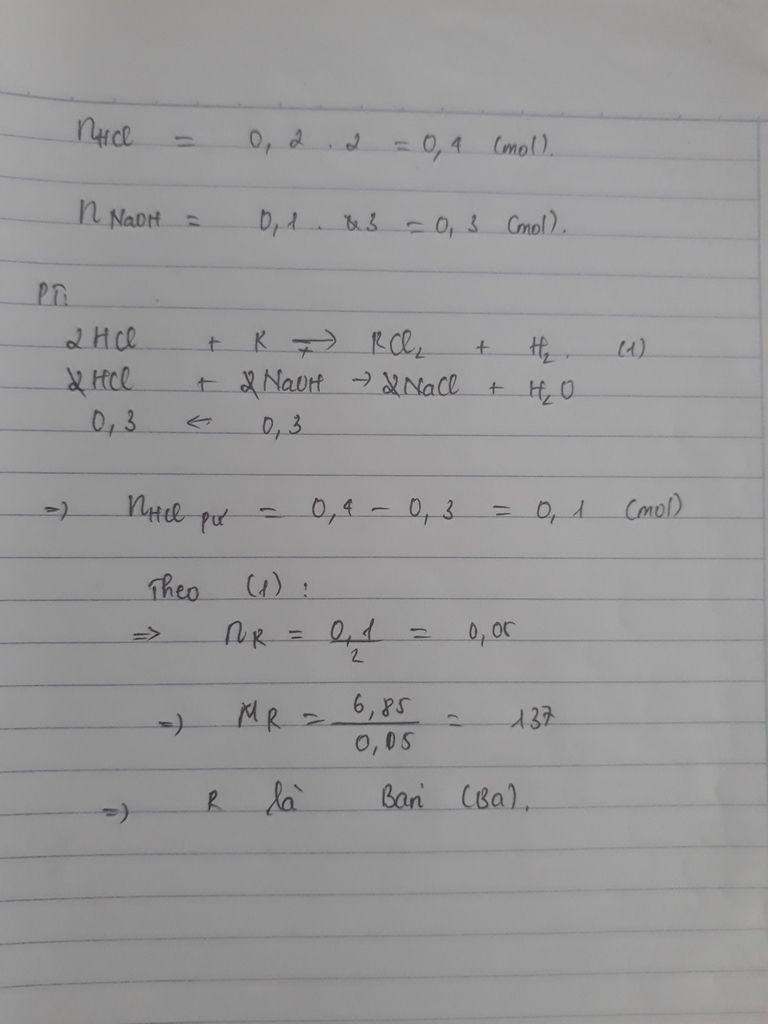 nHCl = 0,2 . 2 = 0,4 (mol).
n NaOH = 0,1 . 3 = 0,3 (mol).
PT:
2HCl + R → RCl₂ + H₂. (1)
HCl + NaOH → NaCl + H₂O
0,3 ← 0,3
=> nHCl pư = 0,4 - 0,3 = 0,1 (mol)
Theo (1) :
=> nR = 0,1/2 = 0,05
=> MR = 6,85/0,05 = 137
=> R là Bari (Ba).